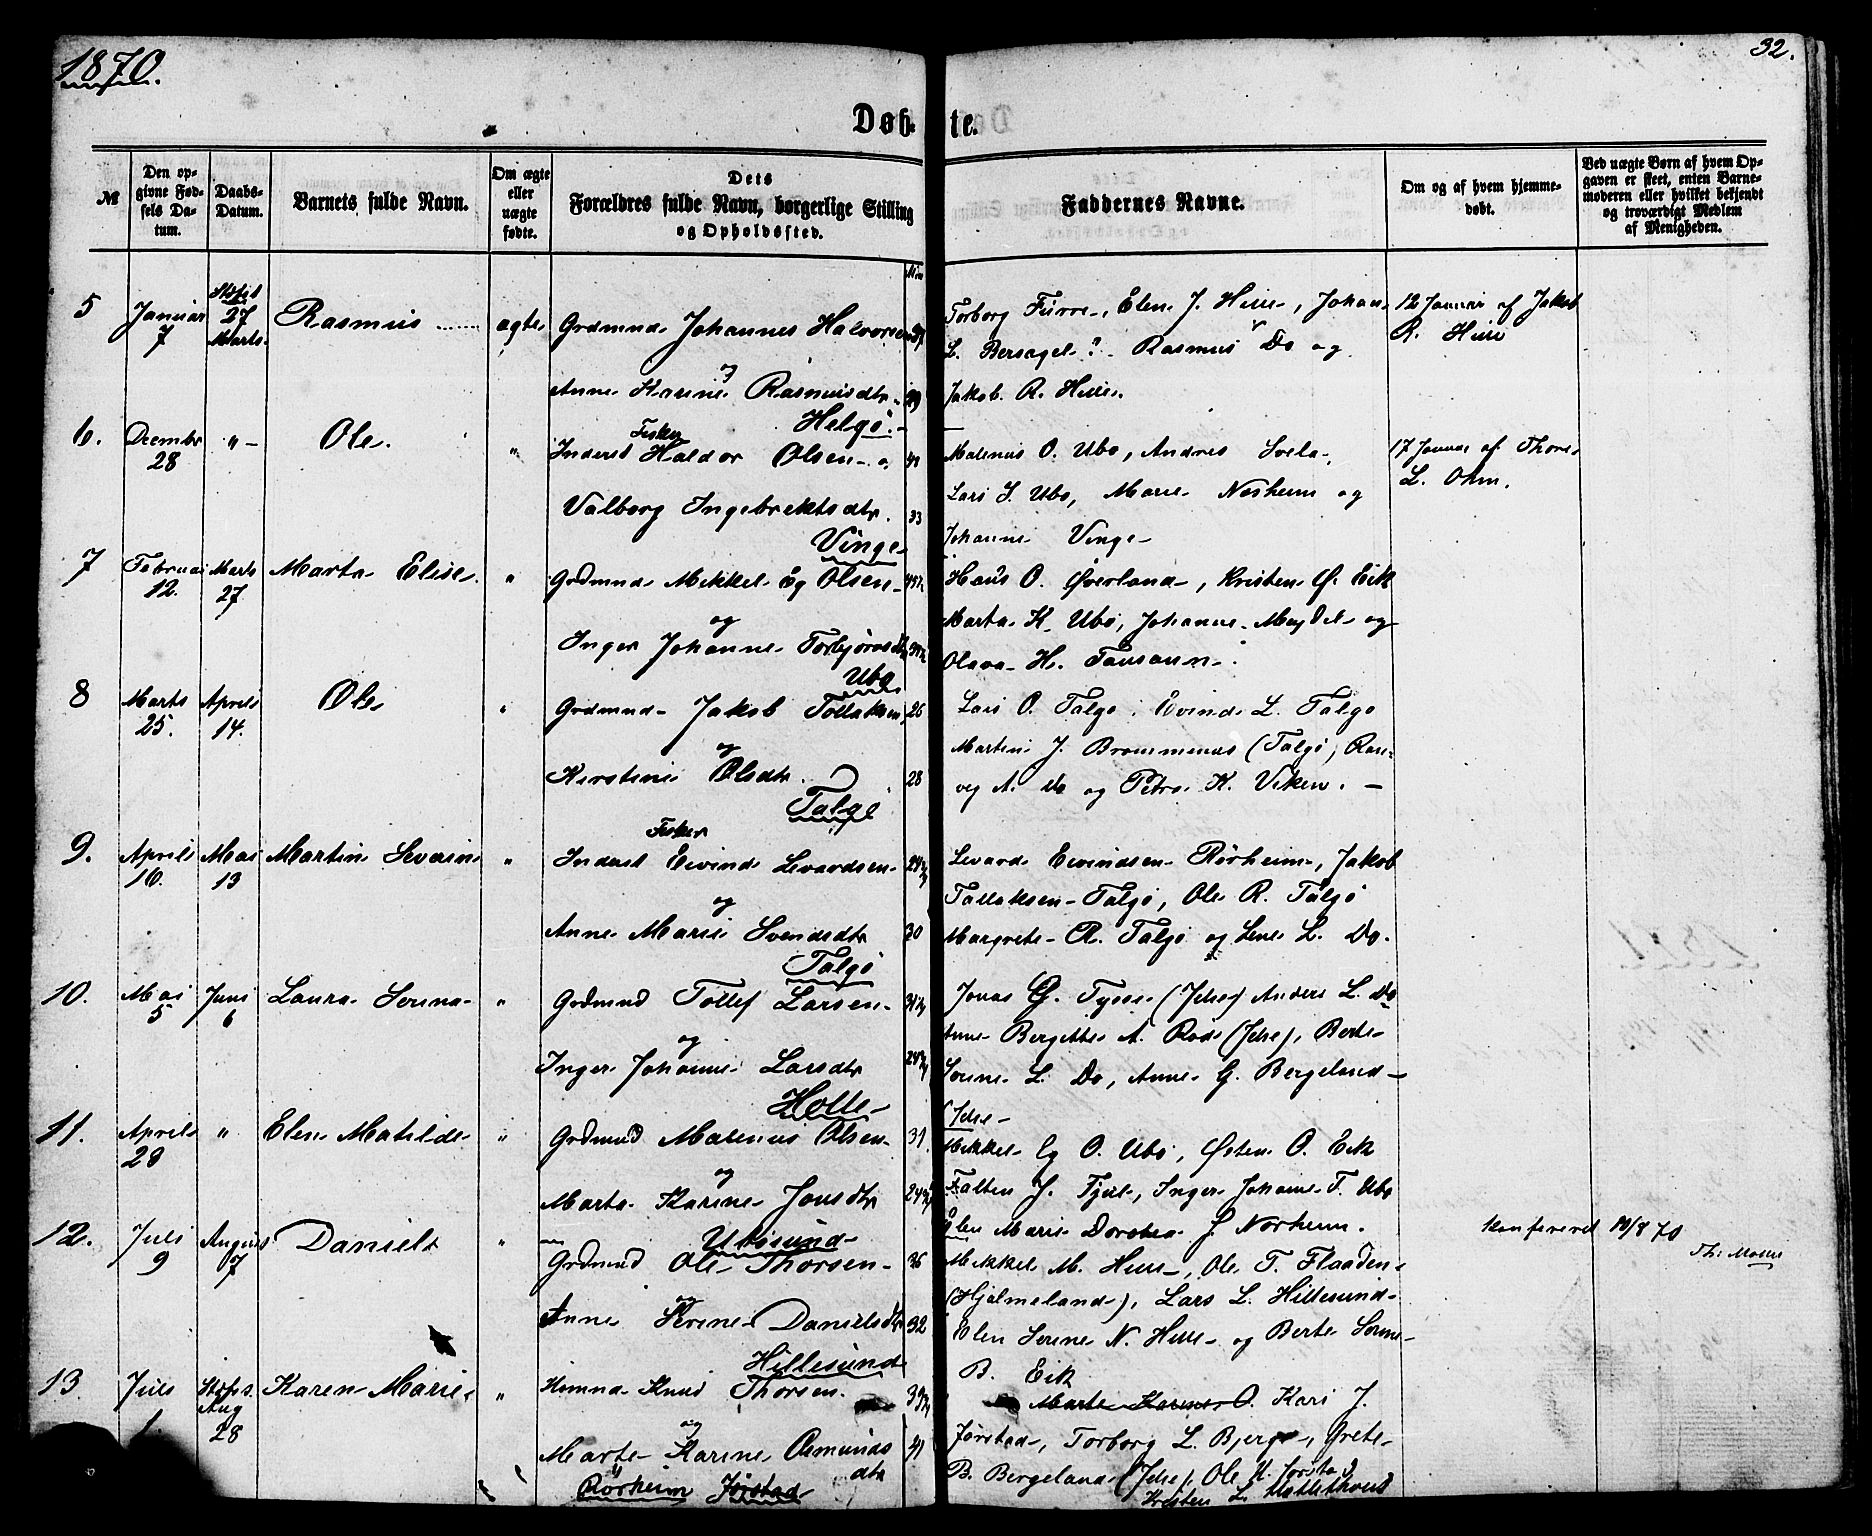 1870.
32.
Døbte.
№
Den opgivne Fødsels Datum.
Daabs-Datum.
Barnets fulde Navn.
Om ægte eller uægte fødte.
Dets Forældres fulde Navn, borgerlige Stilling og Opholdssted.
Faddernes Navne.
Om og af hvem hjemmedøbt.
Ved uægte Børn af hvem Opgaven er skeet, enten Barnemoderen eller hvilket bekjendt og troværdigt Medlem af Menigheden.
5 Januar 7 27 Marts Rasmus ægte Grdmnd Johannes Halvorsen
og
Anne Karine Rasmusdtr 29
Helgø.
Torborg Furre, Elen J. Hille, Johan
L. Bersagel? Rasmus Do og
Jakob R. Hille.
12 Januar af Jakob
R. Hille
6. Decembr 28 " Ole. " Fisker
Inderst Haldor Olsen 41
Valborg Ingebrektsdtr. 33
Vinge
Malenus O. Ubø, Andres Svela,
Lars J. Ubø, Marie Nesheim og
Johanne Vinge
17 Januar af Thore
L. Ohm.
7 Februar 12. Marts 27 Marta Elise " Grdmnd Mikkel Eg Olsen
og
Inger Johanne Torbjørnsdtr
Ubø
Hans O. Øverland, Kristen Ø. Eik
Marta K. Ubø, Johanne Mejdel og
Olava H.
8 Marts 25. Aprils 14. Ole " Grdmnd Jakob Tollaksen 26
og
Kirstine Olsdtr. 28
Talgø
Lars O. Talgø, Eivind L. Talgø
Martin J. Brommenes (Talgø, Ranveg
A. Do og Petra K. Viken.
9. Aprils 10. Mai 13 Martin Severin " Fisker
Inderst Eivind Levardsen
og
Anne Marie Svendsdtr 30
Talgø
Levard Eivindsen Rørheim, Jakob
Tollaksen Talgø, Ole R. Talgø
Margrete R. Talgø og Lene L. Do.
10. Mai 5 Juni 6 Laura Serina " Grdmnd Tollef Larsen
og
Inger Johanne Larsdtr
Holle
Jonas G. Tysse (Jelse) Anders L. Do
Anne Bergette A. Rød (Jelse), Berte
Serine L. Do, Anne G. Bergeland
(Jelse
11. Aprils 28 " Elen Matilde " Grdmnd Malenus Olsen 31
og
Marta Karine Jonsdtr
Ubøsund
Mikkel Eg O. Ubø, Østen O. Eik
J. Fjul, Inger Johanne T. Ubø
Elen Marie Dorthea J. Norheim.
12. Juli 9 August 7 Daniel " Grdmnd Ole Thorsen 36
og
Anne Serine Danielsdtr 32
Hillesund
Mikkel M. Hille, Ole T. Flaaden
(Hjelmeland), Lars L. Hillesund
Elen Serine N. Hille og Berte Serine
B. Eik
Konfereret 19/8 70
13 Juli 1. Aug 28 Karen Marie " Hmmnd Knud Thorsen.
og
Marte Karine Osmundsdtr 41
Rørheim Jørstad
Marte Karine O. Kari J.
Jørstad, Torborg L. Bjerge, Grete
B. Bergeland (Jelse), Ole K. Jørstad
Kristen L.